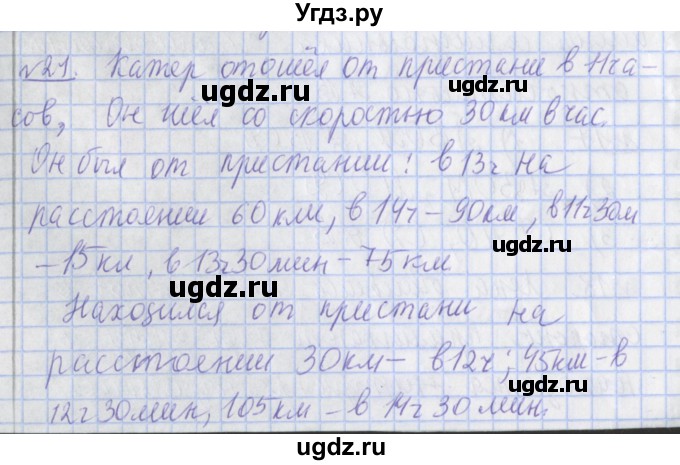 Угдз.ру
№21. Катер отошёл от пристани в 11 ча-
сов, Он шёл со скоростью 30 км в час.
ugdz.ru ugdz.ru
Он был от пристании: в 13ч на
расстоянии 60 км, в 14ч - 90км, в 11ч 30м
ugdz.ru
- 15 км, в 13ч 30 мин - 75 км
ugdz.ru
ugdz.ru
Находился от пристани на
расстоянии 30км - в 12ч; 45км - в
ugdz.ru
12ч 30мин, 105 км - в 14ч 30 мин.
ugdz.ru